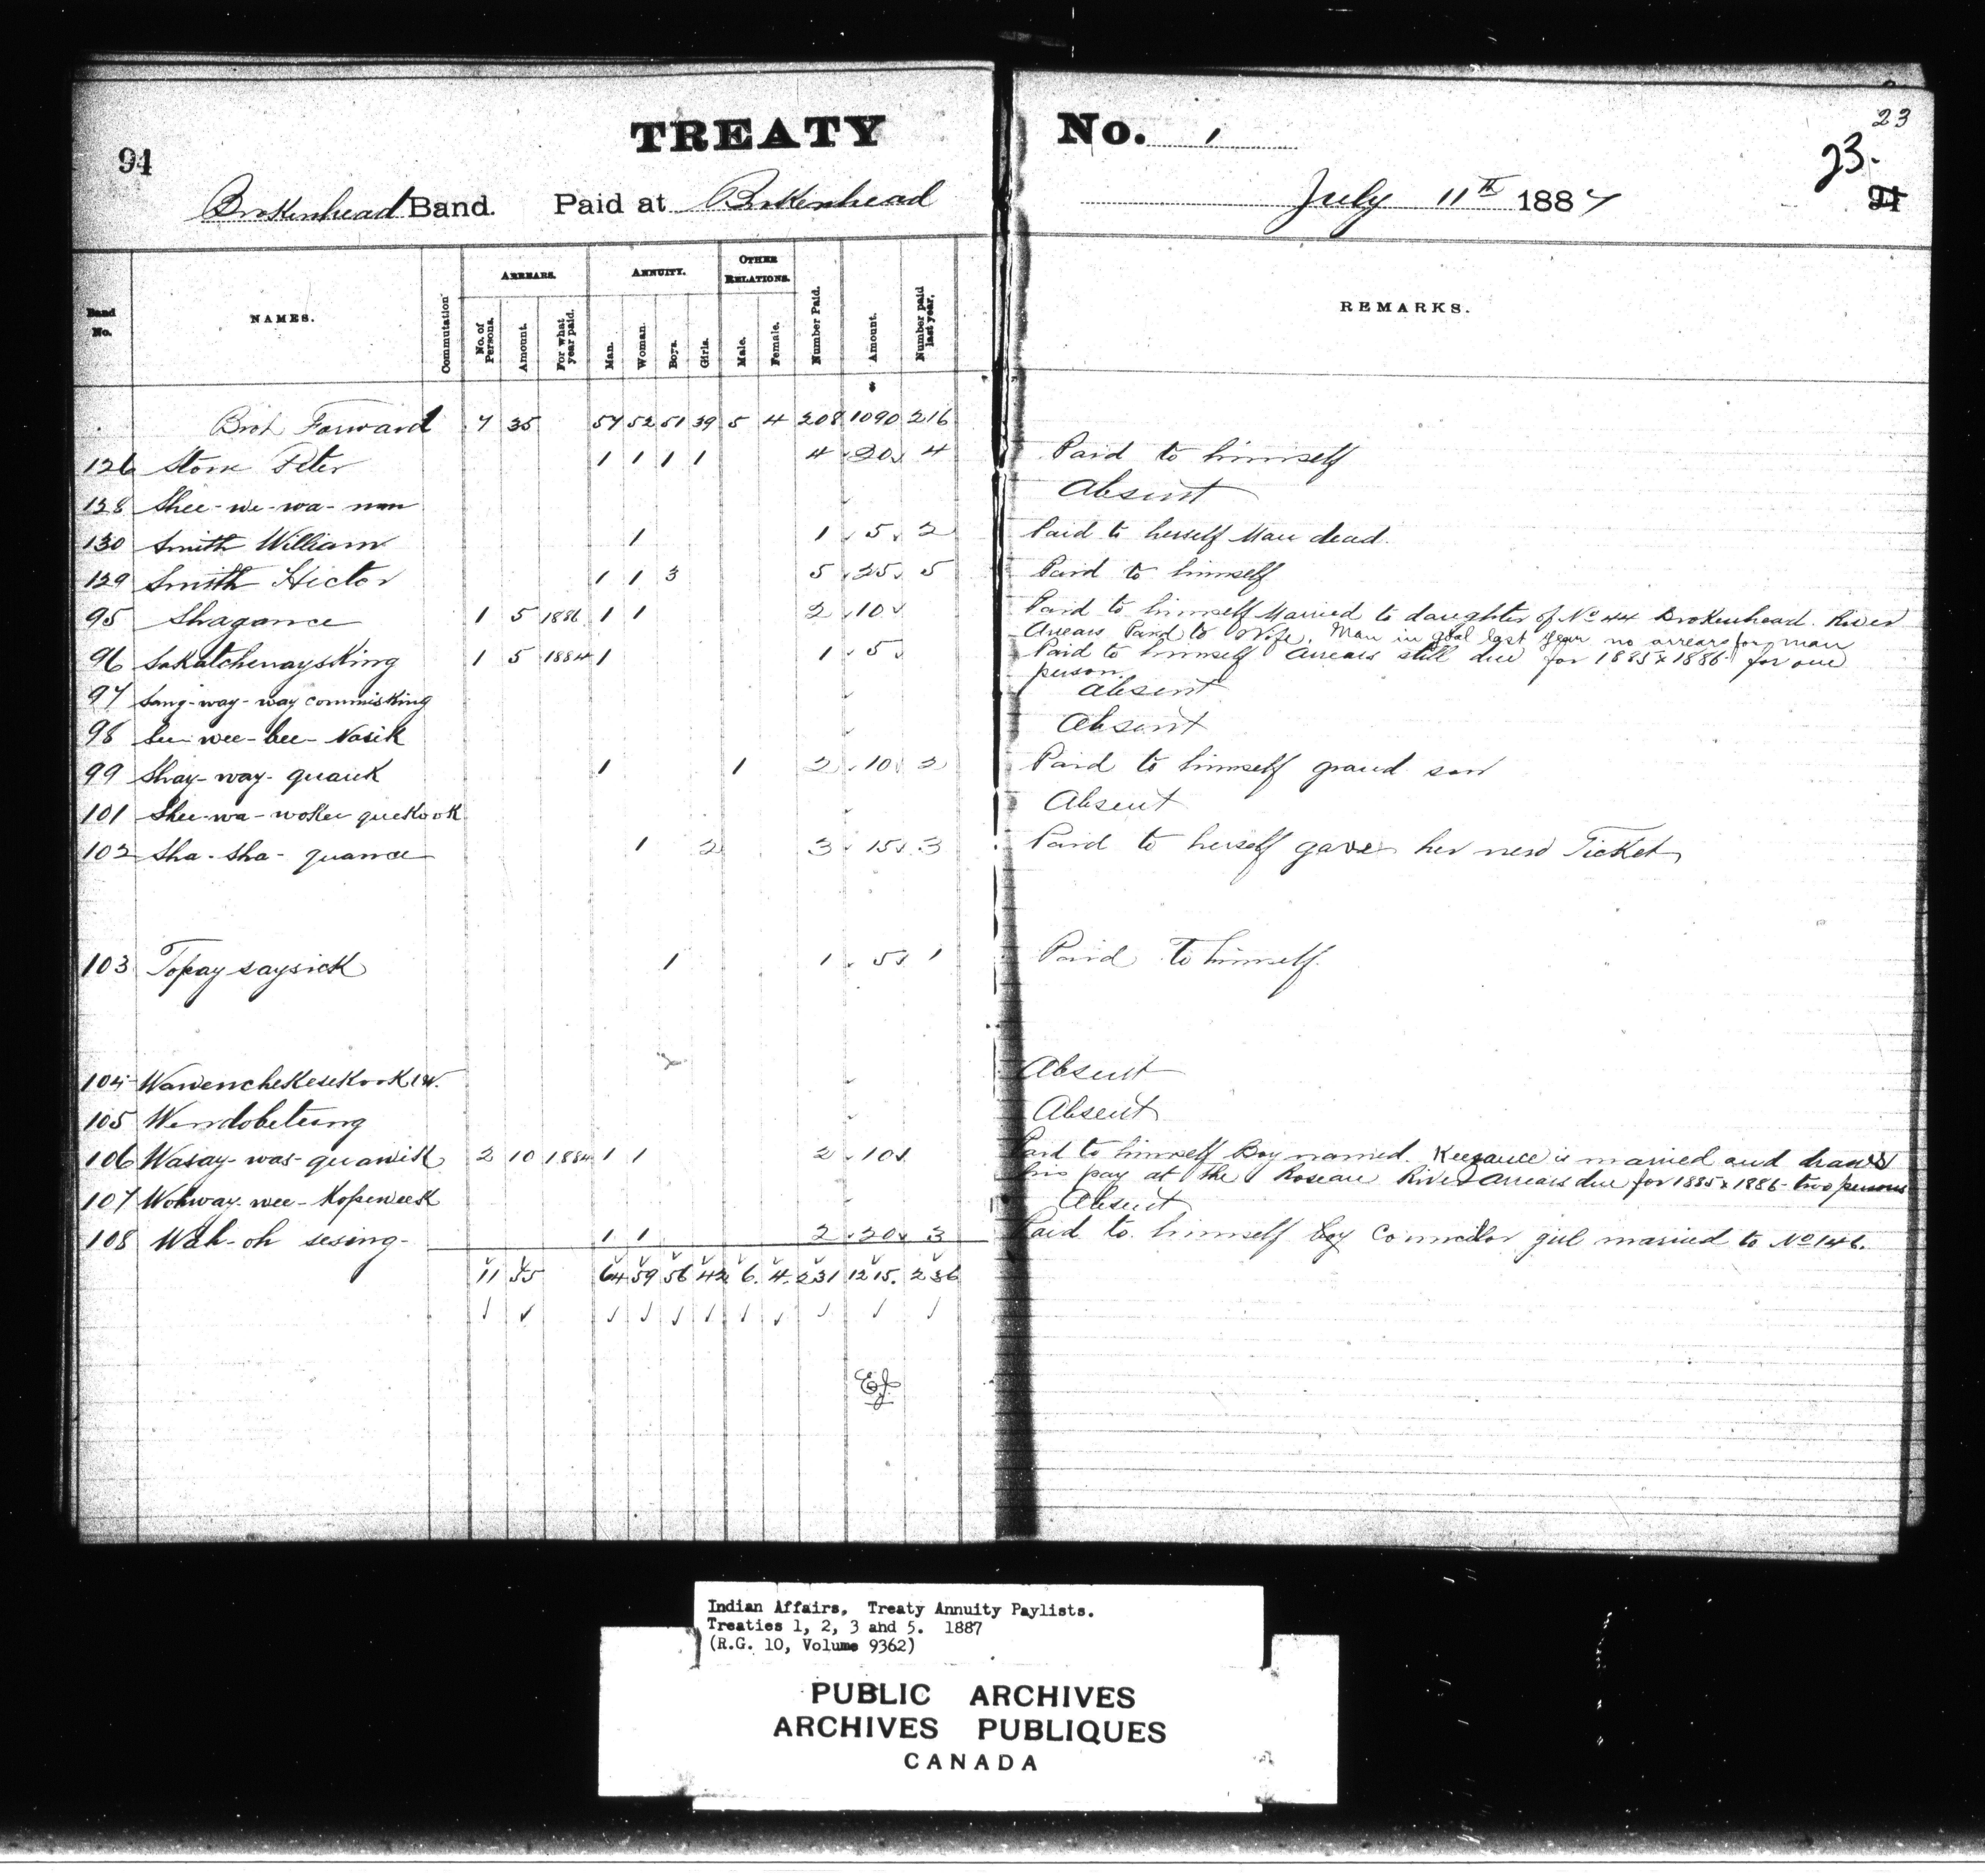 TREATY No. 1
94
23
23.
91
Brokenhead Band. Paid at Brokenhead July 11th 1887
Band No.
NAMES.
Commutation
ARREARS.
No. of Persons.
Amount.
For what year paid.
ANNUITY.
Man.
Woman.
Boys.
Girls.
OTHER RELATIONS.
Male.
Female.
Number Paid.
Amount.
Number paid last year.
REMARKS.
$
Brot Forward 7 35 57 52 51 39 5 4 208 1090 216
126 Stone Peter 1 1 1 1 4 20 4 Paid to himself
128 Shee-we-wa-non Absent
130 Smith William 1 1 5 2 Paid to herself Man dead.
129 Smith Hector 1 1 3 5 25 5 Paid to himself
95 Shagance 1 5 1886 1 1 2 10 Paid to himself Married to daughter of No 44 Brokenhead River
Arrears Paid to Wife. Man in goal last year no arrears for man
96 Sakatcheways King 1 5 1884 1 1 5 Paid to himself Arrears still due for 1885 & 1886 for one
person.
97 Sang-way-way commisking Absent
98 See wee-bee-Nasik Absent
99 Shay-way-quauk 1 1 2 10 2 Paid to himself grand son
101 Shee-wa-woken queKook Absent
102 Sha-sha-quance 1 2 3 15 3 Paid to herself gave her new Ticket
103 Topay saysick 1 1 5 1 Paid to himself.
104 WawencheKeseKooK Absent
105 Wendobetung Absent
106 Wasay-was-quawisk 2 10 1884 1 1 2 10 Paid to himself Boy married. Keesance is married and draws
his pay at the Roseau River Arrears due for 1885 & 1886 two persons
107 Wohway-wee-Kopeweesk Absent
108 Wah-oh sesing- 1 1 2 20 3 Paid to himself boy Councilor girl married to No 146.
11 55 64 59 56 42 6. 4. 231 1215. 236
Indian Affairs, Treaty Annuity Paylists.
Treaties 1, 2, 3 and 5. 1887
(R.G. 10, Volume 9362)
PUBLIC ARCHIVES
ARCHIVES PUBLIQUES
CANADA